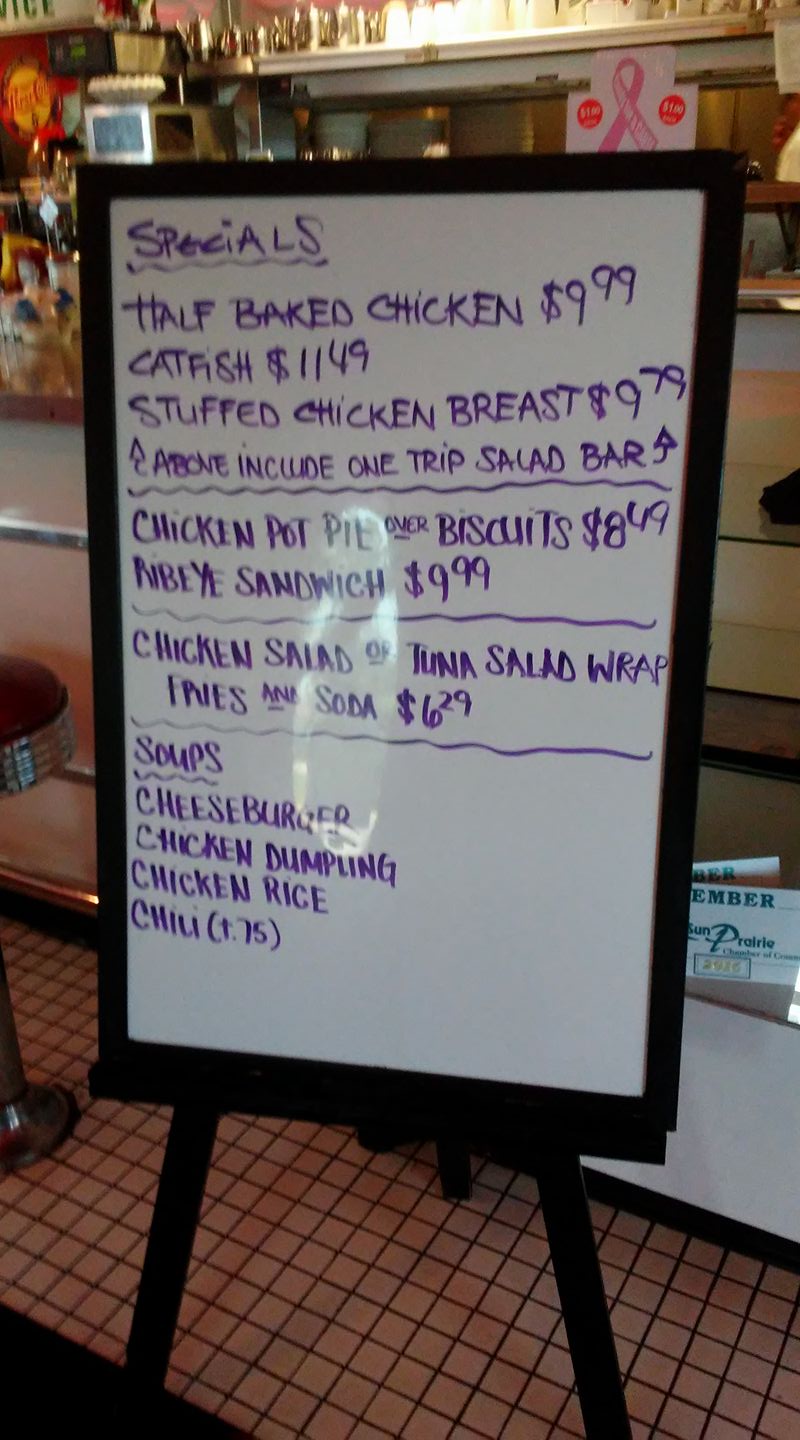 VICE
$1.00
$1.00
SPECIALS
HALF BAKED CHICKEN $9.99
CATFISH $11.49
STUFFED CHICKEN BREAST $9.79
↑ ABOVE INCLUDE ONE TRIP SALAD BAR ↑
CHICKEN POT PIE OVER BISCUITS $8.49
RIBEYE SANDWICH $9.99
CHICKEN SALAD OR TUNA SALAD WRAP
FRIES AND SODA $6.29
SOUPS
CHEESEBURGER
CHICKEN DUMPLING
CHICKEN RICE
CHILI (+.75)
BER
EMBER
Sun Prairie
Chamber of Com